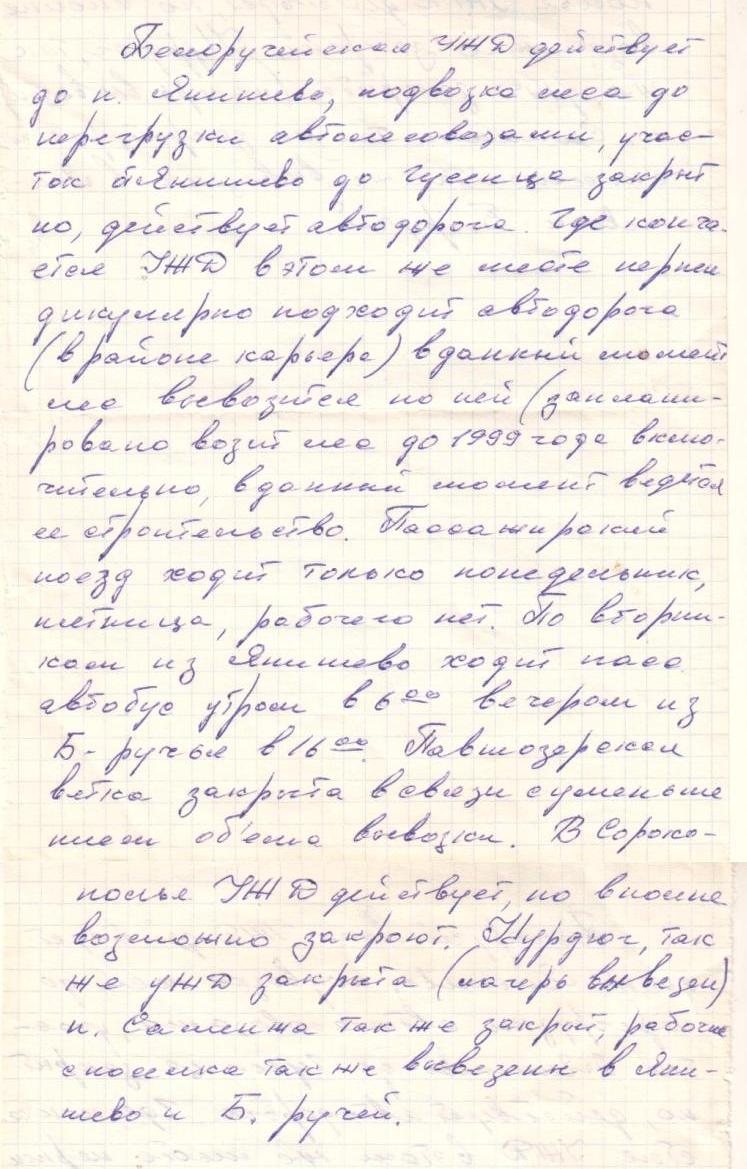 Белоручейская УЖД действует
до п. Янишево, подвозка леса до
перегрузки автолесовозами, учас-
ток от Янишево до Гусеница закрыт
но, действует автодорога. Где конча-
ется УЖД в этом же месте перпен
дикулярно подходит автодорога
(в районе карьера) в данный момент
лес вывозится по ней (заплани-
ровано возит лес до 1999 года вклю-
чительно, в данный момент ведётся
ее строительство. Пассажирский
поезд ходит только понедельник,
пятница, рабочего нет. По вторни-
кам из Янишево ходит пасс.
автобус утром в 6 00 вечером из
Б-ручья в 16 00. Павшозерская
ветка закрыта в связи с уменьше
нием об'ема вывозки. В Сороко-
полье УЖД действует, но вполне
возможно закроют. Курдюг, так
же УЖД закрыта (лагерь вывезен)
п. Саминжа так же закрыт, рабочие
с поселка так же вывезены в Яни-
шево и Б. ручей.